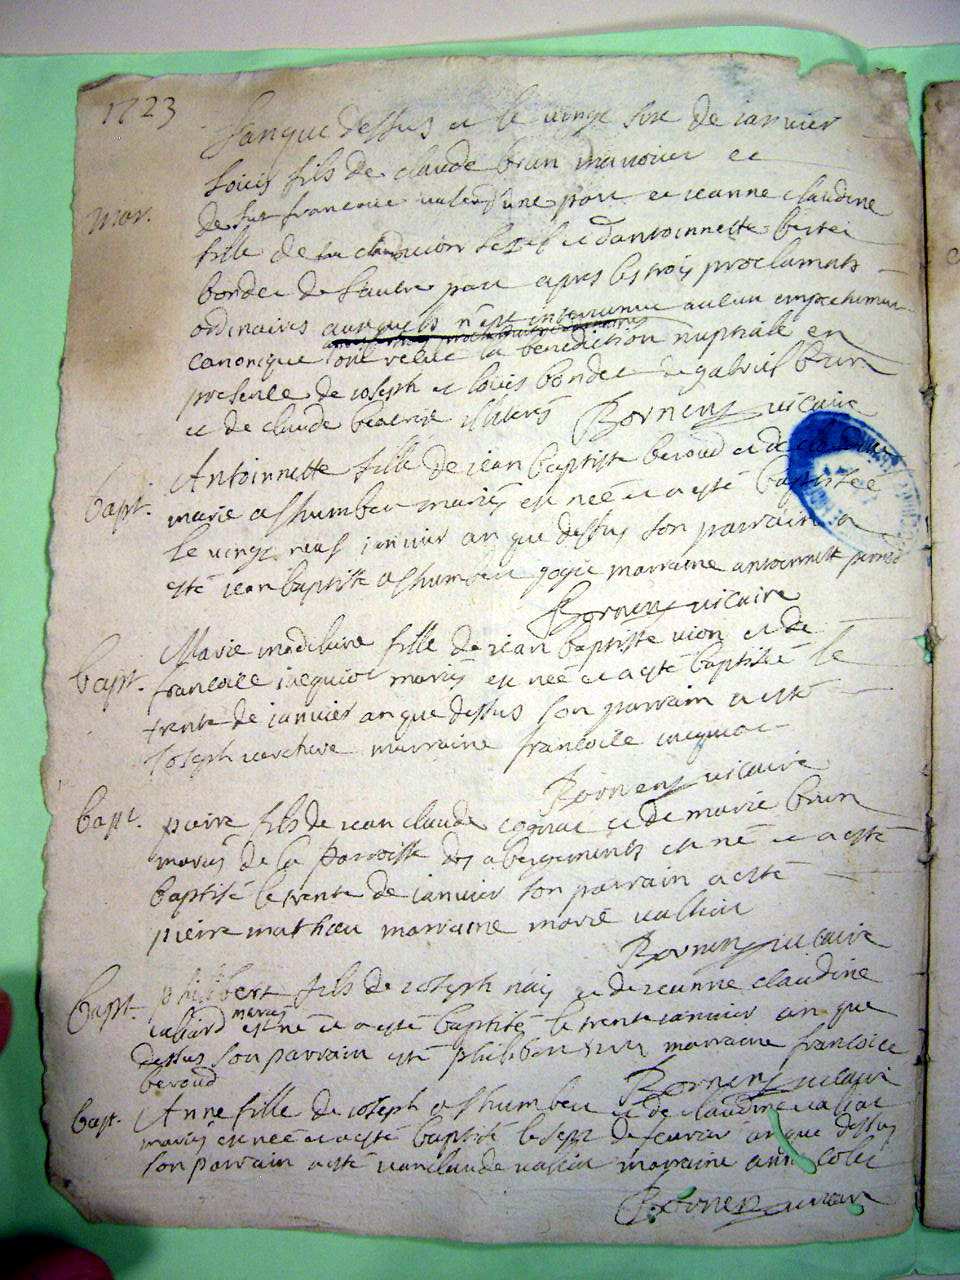 1723
L'an que dessus et le vingt six de janvier
Mar.
Louis fils de claude brun manovier et
de fut francoise d'une part et jeanne claudine
fille de fut et d'antoinnette
bondet de l'autre part apres les trois proclamats
ordinaires auxquels n'est intervenue aucun empechement
canonique ont recue la benediction nuptialle en
presence de joseph et louis bondet de gabriel brun
et de claude illiteres Bornens vicaire
bapt.
Antoinnette fille de jean baptiste beroud et de
marie mariés est née et a esté baptisée
le vingt neuf janvier an que dessus son parrain a
esté jean baptiste marraine antoinnette
Bornens vicaire
bapt.
Marie modeline fille de jean baptiste vion et de
francoise jacquiot mariés est née et a esté baptisée le
trente de janvier an que dessus son parrain a esté
Joseph marraine francoise jacquiot
Bornens vicaire
bapt.
pierre fils de jean claude et de marie brun
mariés de la parroisse des abergements est né et a esté
baptisé le trente de janvier son parrain a esté
pierre mathieu marraine marie
Bornens vicaire
bapt.
philibert fils de joseph et de jeanne claudine
mariés
est né et a esté baptisé le trente janvier an que
dessus son parrain esté philibert marraine francoise
beroud
Bornens vicaire
bapt.
Anne fille de joseph et de claudine
mariés est née et a esté baptisé le sept de fevrier an que dessus
son parrain a esté jean claude marraine anne
Bornens vicaire